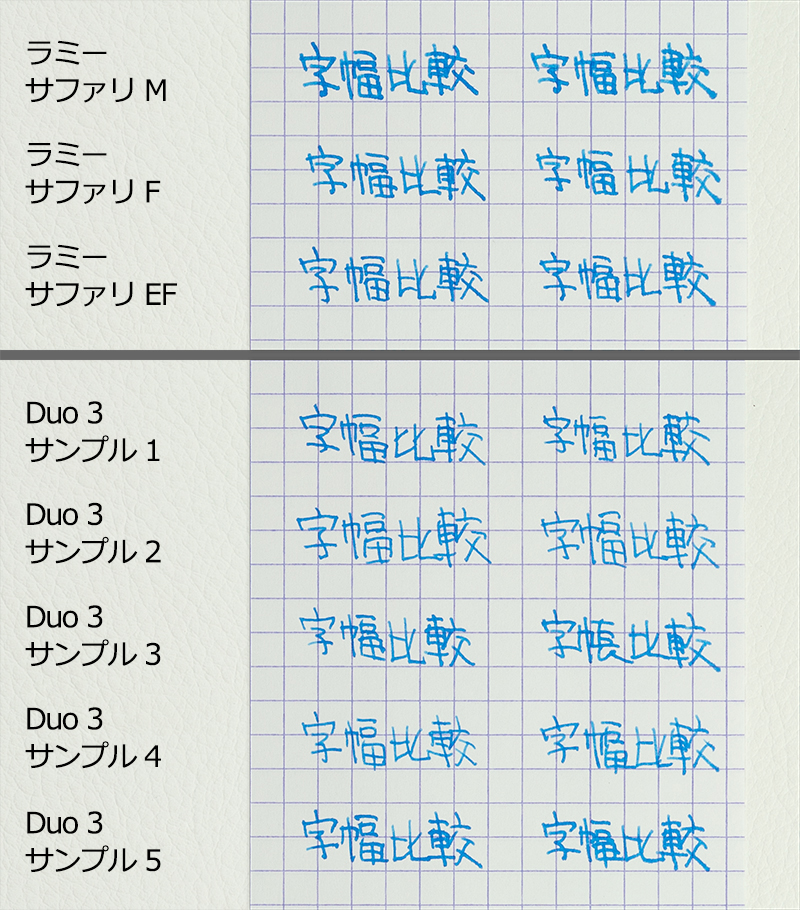 ラミー
サファリ M
字幅比較 字幅比較
ラミー
サファリ F
字幅比較 字幅比較
ラミー
サファリ EF
字幅比較 字幅比較
Duo 3
サンプル 1
字幅比較 字幅比較
Duo 3
サンプル 2
字幅比較 字幅比較
Duo 3
サンプル 3
字幅比較 字帳比較
Duo 3
サンプル 4
字幅比較 字幅比較
Duo 3
サンプル 5
字幅比較 字幅比較